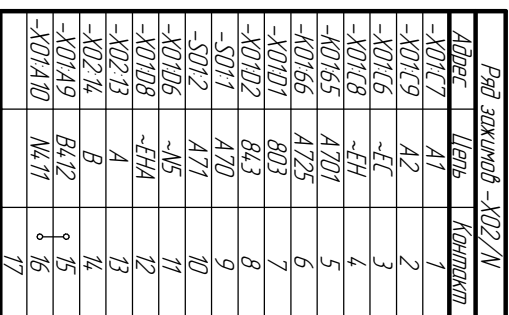 Ряд зажимов -X02/N
Адрес Цепь Контакт
-X01:C7 A1 1
-X01:C9 A2 2
-X01:C6 ~EC 3
-X01:C8 ~EH 4
-K01:65 A701 5
-K01:66 A725 6
-X01:D1 803 7
-X01:D2 843 8
-S01:1 A70 9
-S01:2 A71 10
-X01:D6 ~N5 11
-X01:D8 ~EHA 12
-X02:13 A 13
-X02:14 B 14
-X01:A9 B412 15
-X01:A10 N411 16
17